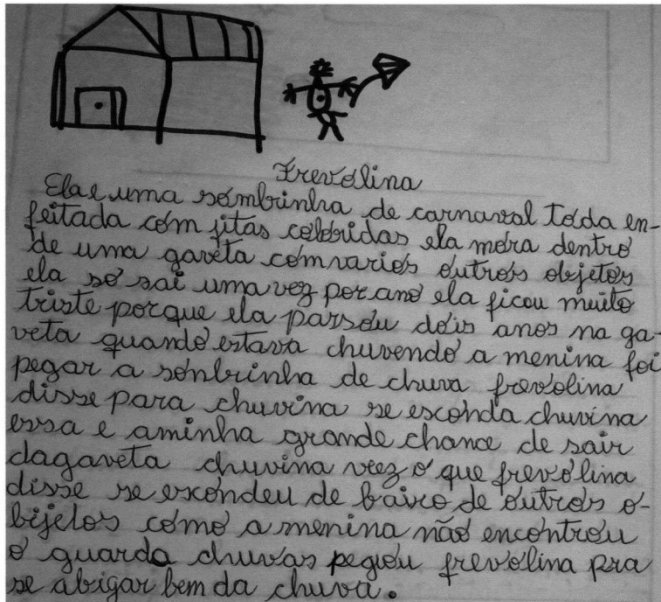 Frevolina
Ela e uma sombrinha de carnaval toda en-
feitada com fitas coloridas ela mora dentro
de uma gaveta comvarios outros objetos
ela só sai uma vez por ano ela ficou muito
triste porque ela passou dois anos na ga-
veta quando estava chuvendo a menina foi
pegar a sonbrinha de chuva frevolina
disse para chuvina se esconda chuvina
essa e aminha grande chance de sair
dagaveta chuvina viez o que frevolina
disse se escondeu de baixo de outros o-
bijetos como a menina não encontrou
o guarda chuvas pegiou frevolina pra
se abigar bem da chuva.